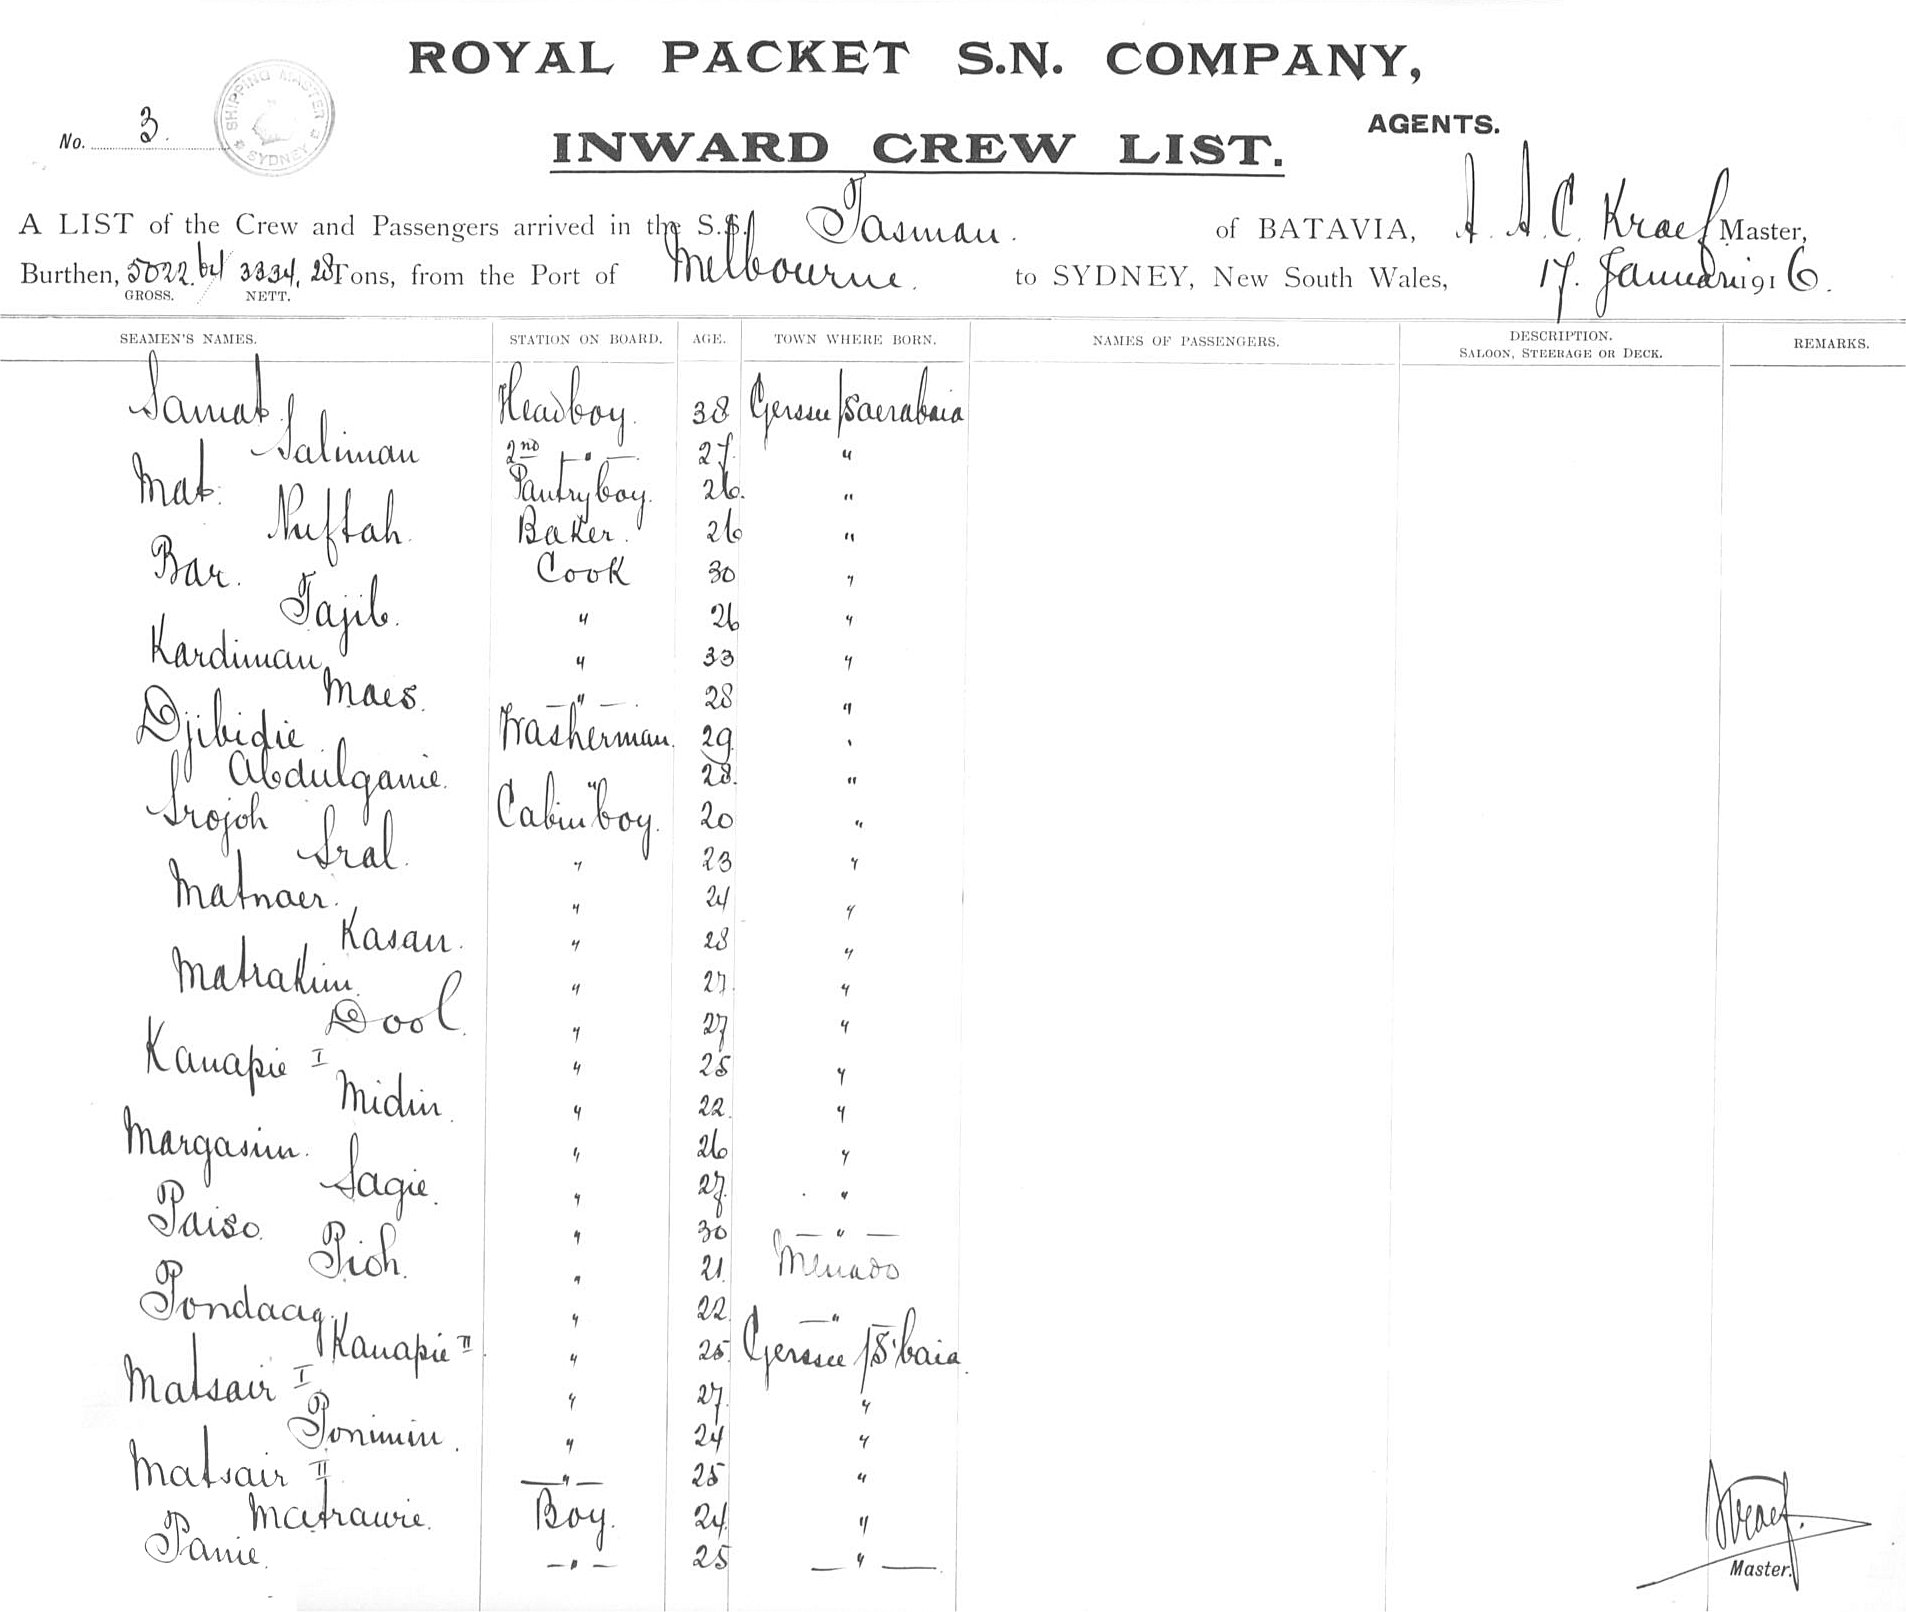 ROYAL PACKET S.N. COMPANY,
AGENTS.
No. 3.
SHIPPING MASTER SYDNEY
INWARD CREW LIST.
A LIST of the Crew and Passengers arrived in the S.S. Tasman. of BATAVIA, A. A. C. Kraef Master,
Burthen, 5022.64 3334,28 Tons, from the Port of Melbourne. to SYDNEY, New South Wales, 17. Januari 1916.
GROSS. NETT.
SEAMEN'S NAMES. STATION ON BOARD. AGE. TOWN WHERE BORN. NAMES OF PASSENGERS. DESCRIPTION. SALOON, STEERAGE OR DECK. REMARKS.
Samat. Headboy. 38 Gerssee/Saerabaia
Saliman 2nd —"— 27. "
Mat. Pantryboy. 26. "
Nuftah. Baker. 26 "
Bar. Cook 30 "
Tajib. " 26 "
Kardiman " 33 "
Maes. —"— 28 "
Djibidie Washerman. 29 "
Abdulganie. " 28. "
Srojoh Cabinboy. 20 "
Sral. " 23 "
Matnaer. " 24 "
Kasan. " 28 "
Matrakim. " 27. "
Dool. " 27 "
Kanapie I " 25 "
Midin. " 22. "
Margasim. " 26 "
Sagie. " 27. "
Paiso. " 30 —"—
Pioh. " 21. Menado
Pondaag. " 22. —"
Kanapie II. " 25. Gerssee/S'baia.
Matsair I " 27. "
Ponimin. " 24 "
Matsair II —"— 25 "
Matrawie. Boy. 24. "
Panie. —"— 25 —"—
Kraef.
Master.